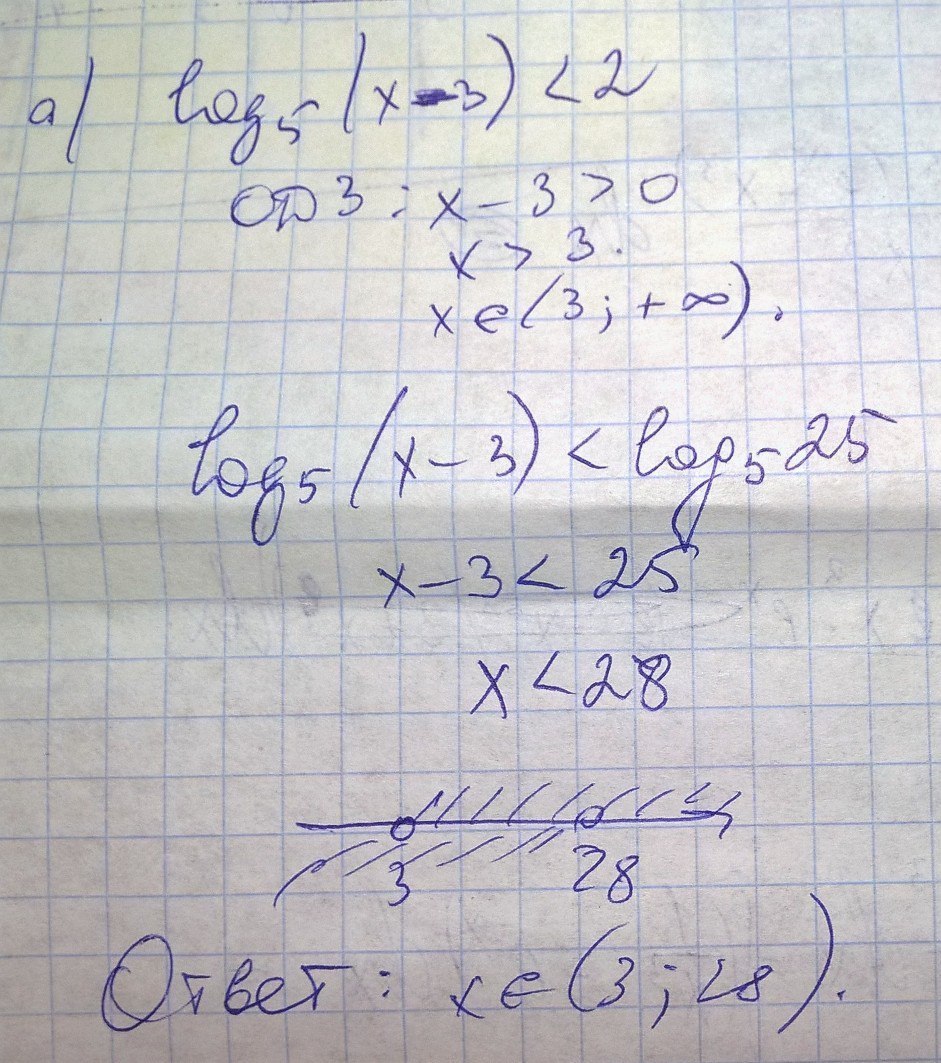 а) log₅(x-3) <2
ОДЗ: x-3>0
x > 3.
x∈(3;+∞).
log₅(x-3) < log₅25
x-3< 25
x<28
3 28
Ответ: x∈(3;28).